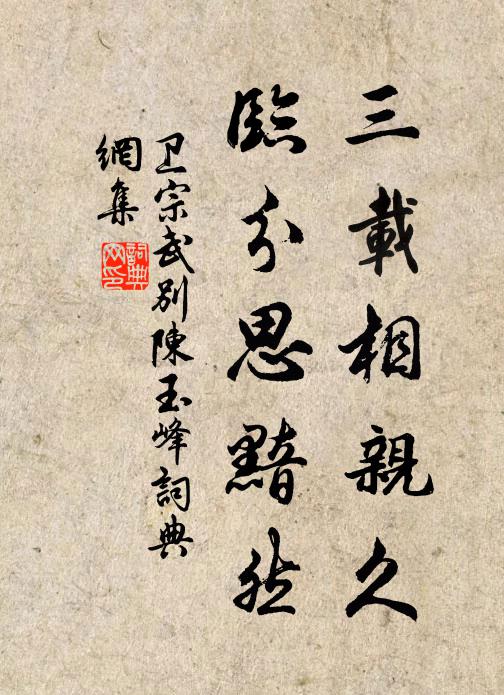 三載相親久
臨分思黯然
卫宗武别陳玉峰詞典
網集
詞典网印